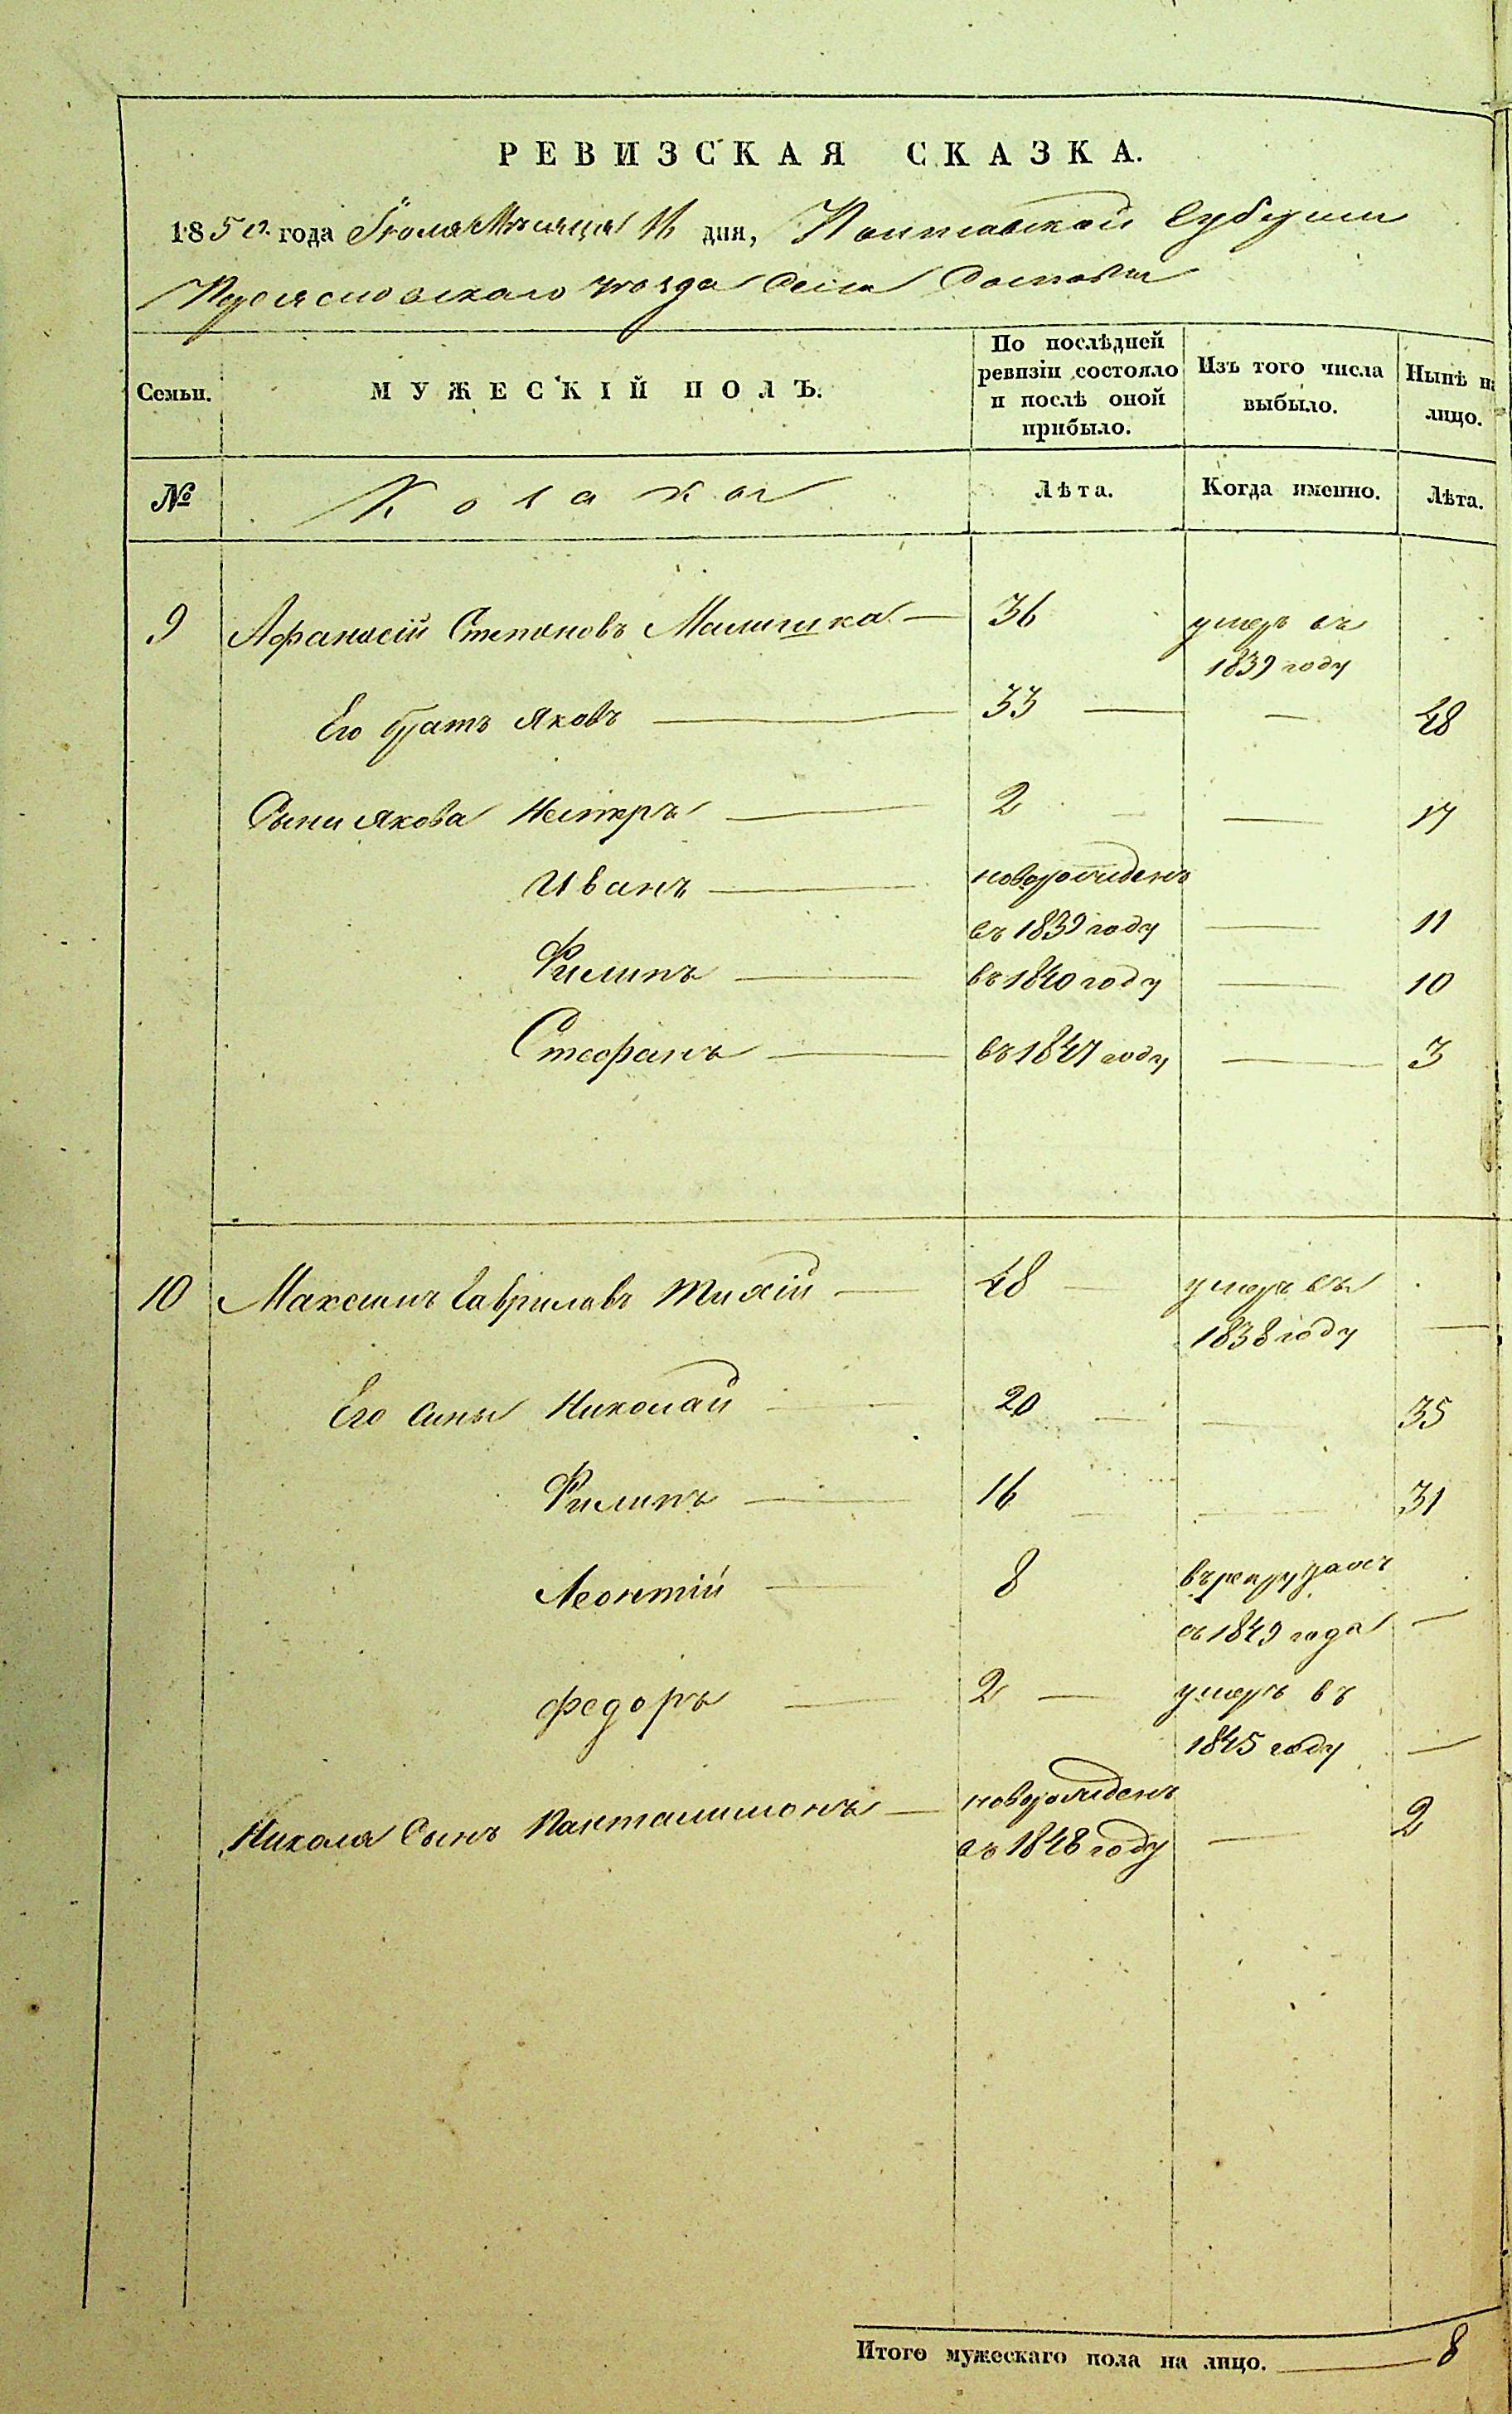 РЕВИЗСКАЯ СКАЗКА.
1850 года Іюля Мѣсяца дня, Полтавской Губерніи
Переясловскаго уѣзда Села
Семьи.
МУЖЕСКІЙ ПОЛЪ.
По послѣдней
ревизіи состояло
и послѣ оной
прибыло.
Изъ того числа
выбыло.
Нынѣ на
лицо.
№
Козаки
Лѣта.
Когда именно.
Лѣта.
9 Афанасій Степановъ Малишка — 36 умеръ въ
1839 году
Его братъ Яковъ — 33 — — 48
Сыни Якова Несторъ — 2 — 17
Иванъ — новорожденъ
въ 1839 году — 11
Филипъ — въ 1840 году — 10
Стефанъ — въ 1847 году — 3
10 Максимъ Гавриловъ Тихій — 48 — умеръ въ
1838 году —
Его Сыны Николай — 20 — — 35
Филипъ — 16 — — 31
Леонтій — 8 въ рекрутахъ
съ 1849 года —
Федоръ — 2 — умеръ въ
1845 году —
Николая Сынъ Панталимонъ — новорожденъ
въ 1848 году — 2
Итого мужескаго пола на лицо. — 8